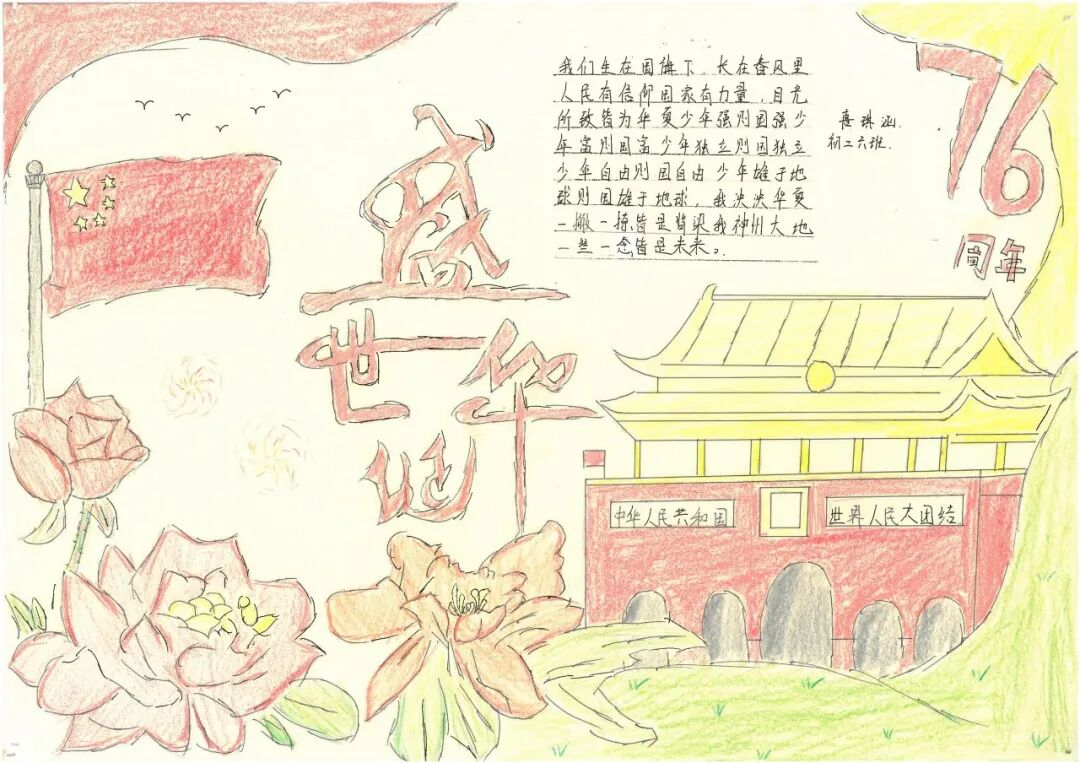 盛
世华
诞
我们生在国旗下、长在春风里
人民有信仰国家有力量，目光
所致皆为华夏少年强则国强少
年富则国富少年独立则国独立
少年自由则国自由 少年雄于地
球则国雄于地球，我泱泱华夏
一撇一捺皆是脊梁我神州大地
一丝一念皆是未来。
琪涵
初二六班
76
周年
中华人民共和国
世界人民大团结